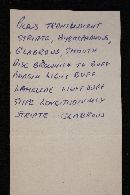 PILEUS TRANSLUCENT
STRIATE, HYGROPHANOUS,
GLABROUS, SMOOTH
DISC BROWNISH TO BUFF
MARGIN LIGHT BUFF
LAMELLAE LIGHT BUFF
STIPE LONGITUDINALLY
STRIATE GLABROUS